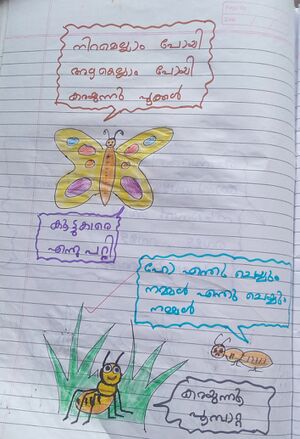 നിറമെല്ലാം പോയി
അഴകെല്ലാം പോയി
കരയുന്നു പൂക്കൾ
കൂട്ടുകാരെ
എന്തുപറ്റി
ഹോ എന്തു ചെയ്യും
നമ്മൾ എന്തു ചെയ്യും
നമ്മൾ
കരയുന്നു
പൂമ്പാറ്റ